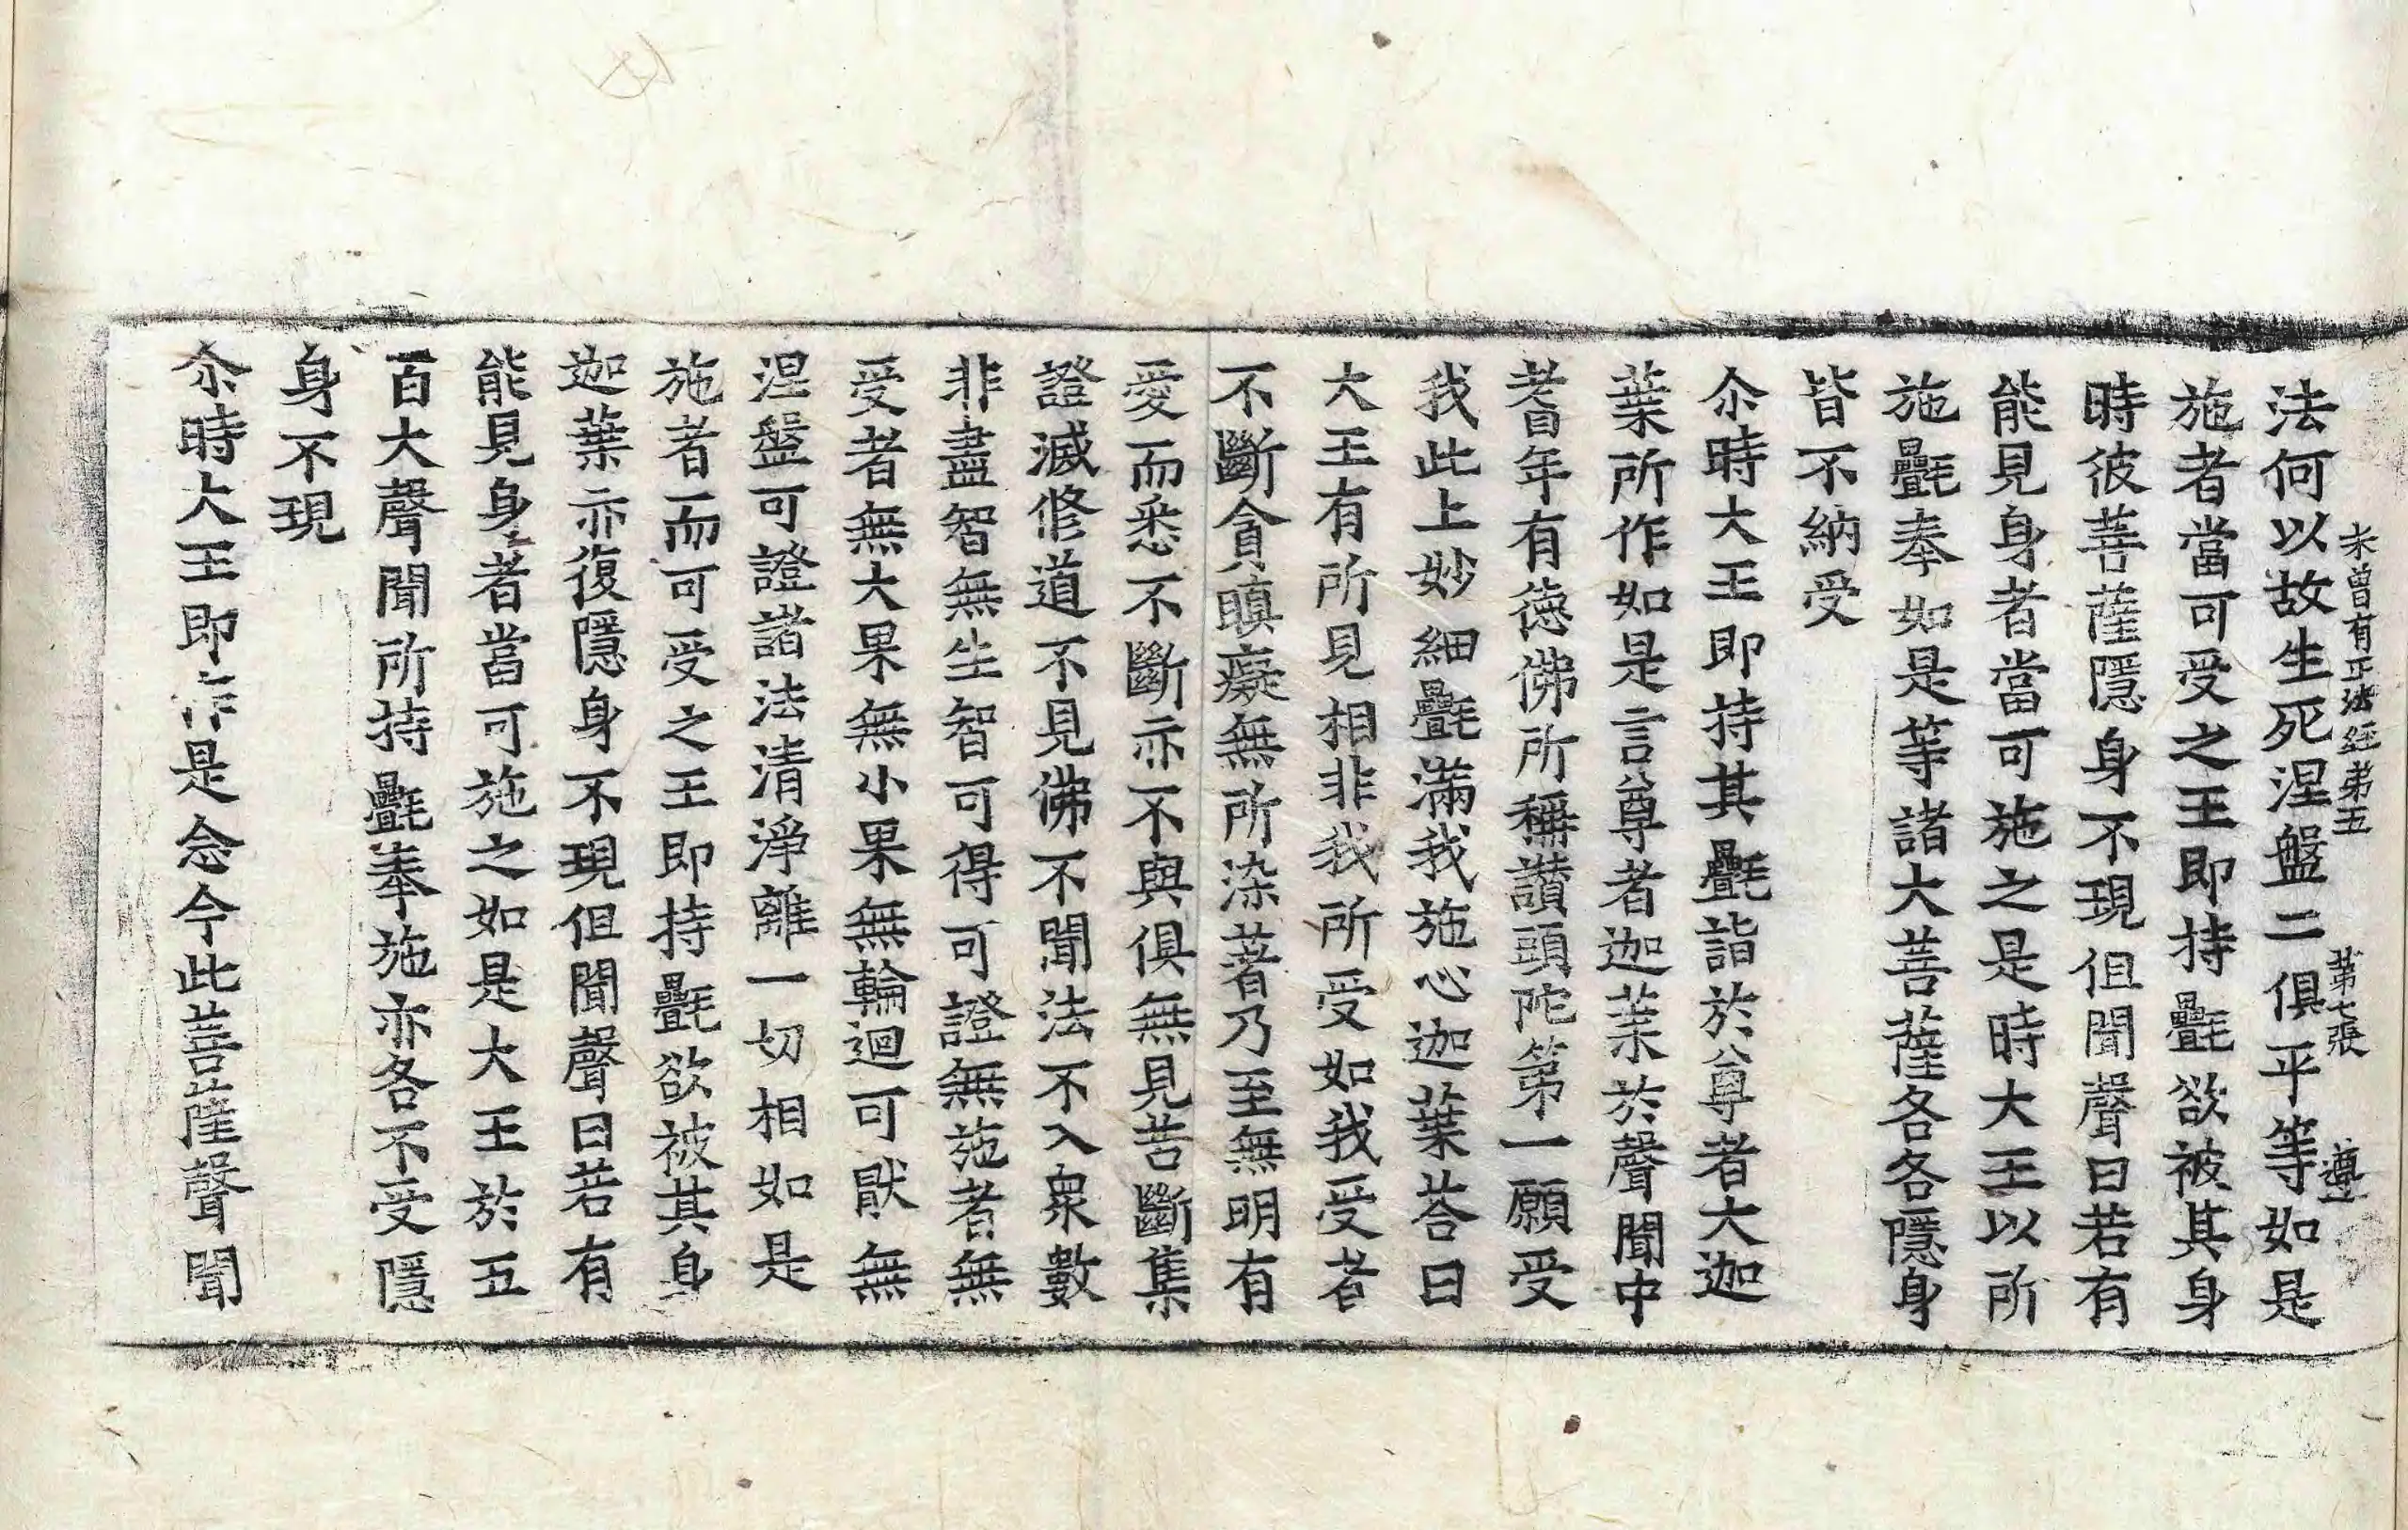 未曾有正法經第五　第七張　遵
法何以故生死涅盤二俱平等如是
施者當可受之王即持㲲欲被其身
時彼菩薩隱身不現但聞聲曰若有
能見身者當可施之是時大王以所
施㲲奉如是等諸大菩薩各各隱身
皆不納受
尒時大王即持其㲲詣於尊者大迦
葉所作如是言尊者迦葉於聲聞中
耆年有德佛所稱讚頭陀第一願受
我此上妙細㲲滿我施心迦葉荅曰
大王有所見相非我所受如我受者
不斷貪瞋癡無所染著乃至無明有
愛而悉不斷亦不與俱無見苦斷集
證滅修道不見佛不聞法不入衆數
非盡智無生智可得可證無施者無
受者無大果無小果無輪迴可猒無
涅盤可證諸法清淨離一切相如是
施者而可受之王即持㲲欲被其身
迦葉亦復隱身不現但聞聲曰若有
能見身者當可施之如是大王於五
百大聲聞所持㲲奉施亦各不受隱
身不現
尒時大王即作是念今此菩薩聲聞